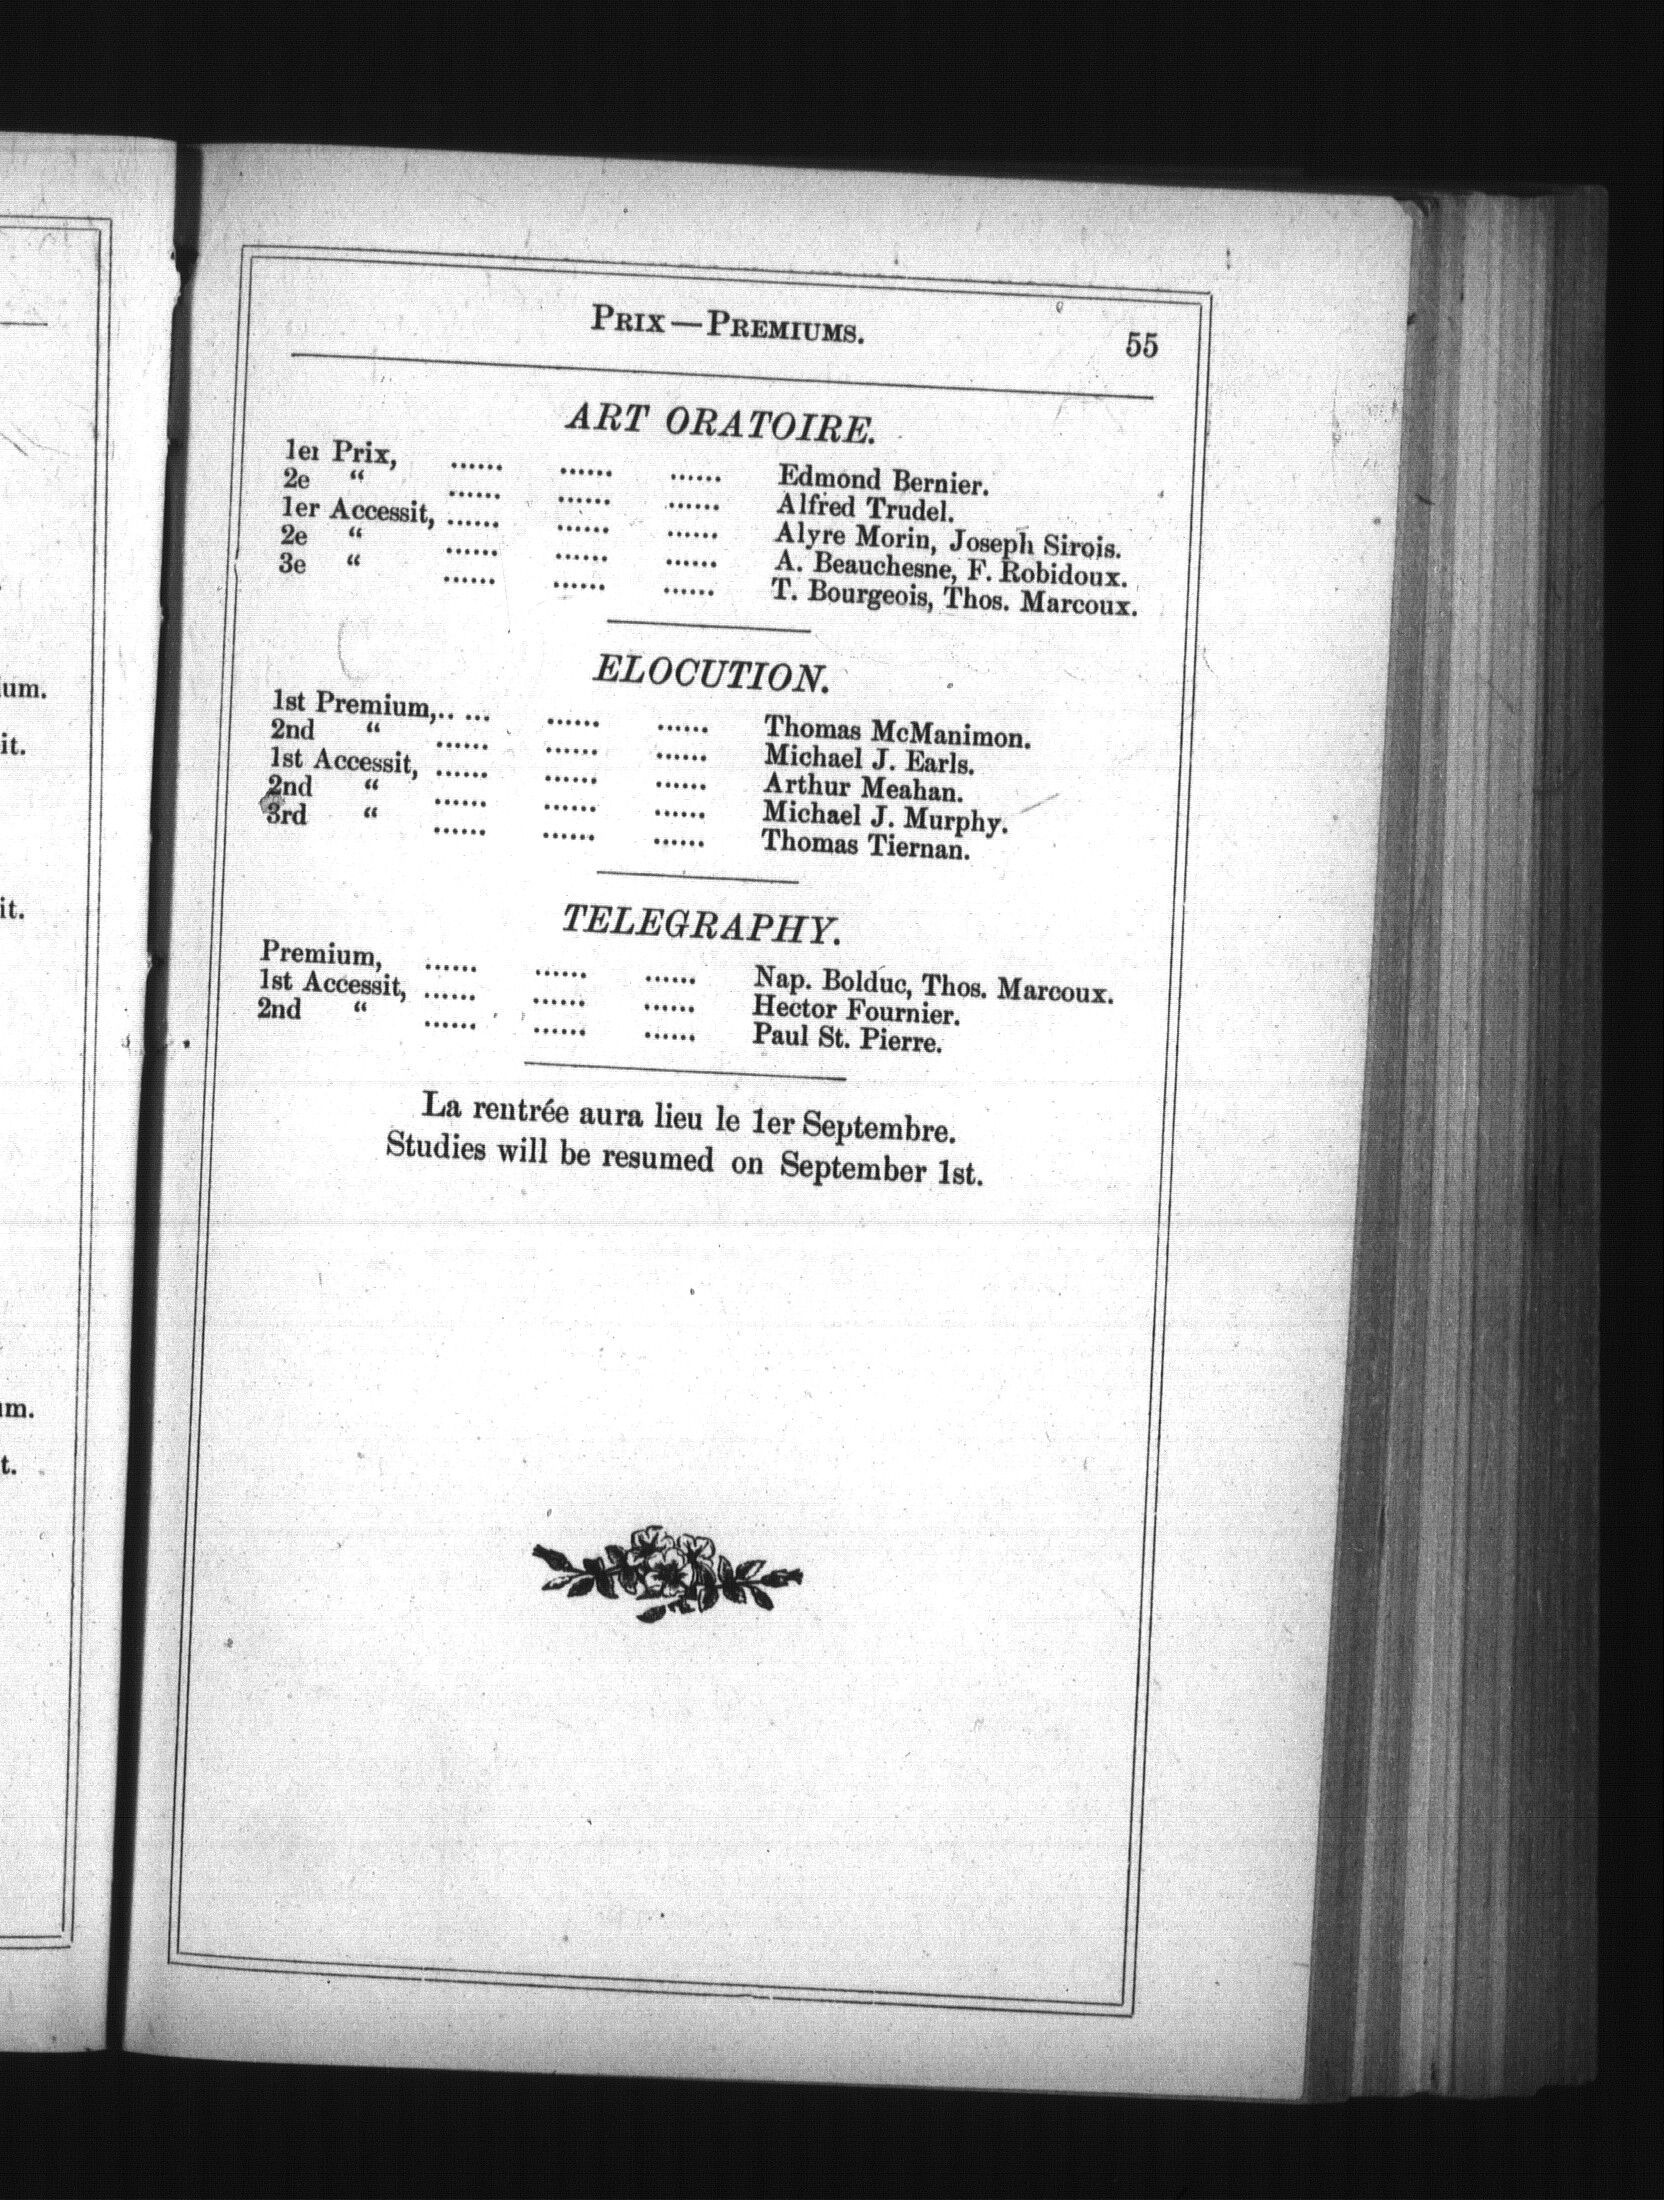 PRIX — PREMIUMS. 55
ART ORATOIRE.
1er Prix, ...... ...... ...... Edmond Bernier.
2e “ ...... ...... ...... Alfred Trudel.
1er Accessit, ...... ...... ...... Alyre Morin, Joseph Sirois.
2e “ ...... ...... ...... A. Beauchesne, F. Robidoux.
3e “ ...... ...... ...... T. Bourgeois, Thos. Marcoux.
ELOCUTION.
1st Premium,.. ... ...... ...... Thomas McManimon.
2nd “ ...... ...... ...... Michael J. Earls.
1st Accessit, ...... ...... ...... Arthur Meahan.
2nd “ ...... ...... ...... Michael J. Murphy.
3rd “ ...... ...... ...... Thomas Tiernan.
TELEGRAPHY.
Premium, ...... ...... ...... Nap. Bolduc, Thos. Marcoux.
1st Accessit, ...... ...... ...... Hector Fournier.
2nd “ ...... ...... ...... Paul St. Pierre.
La rentrée aura lieu le 1er Septembre.
Studies will be resumed on September 1st.